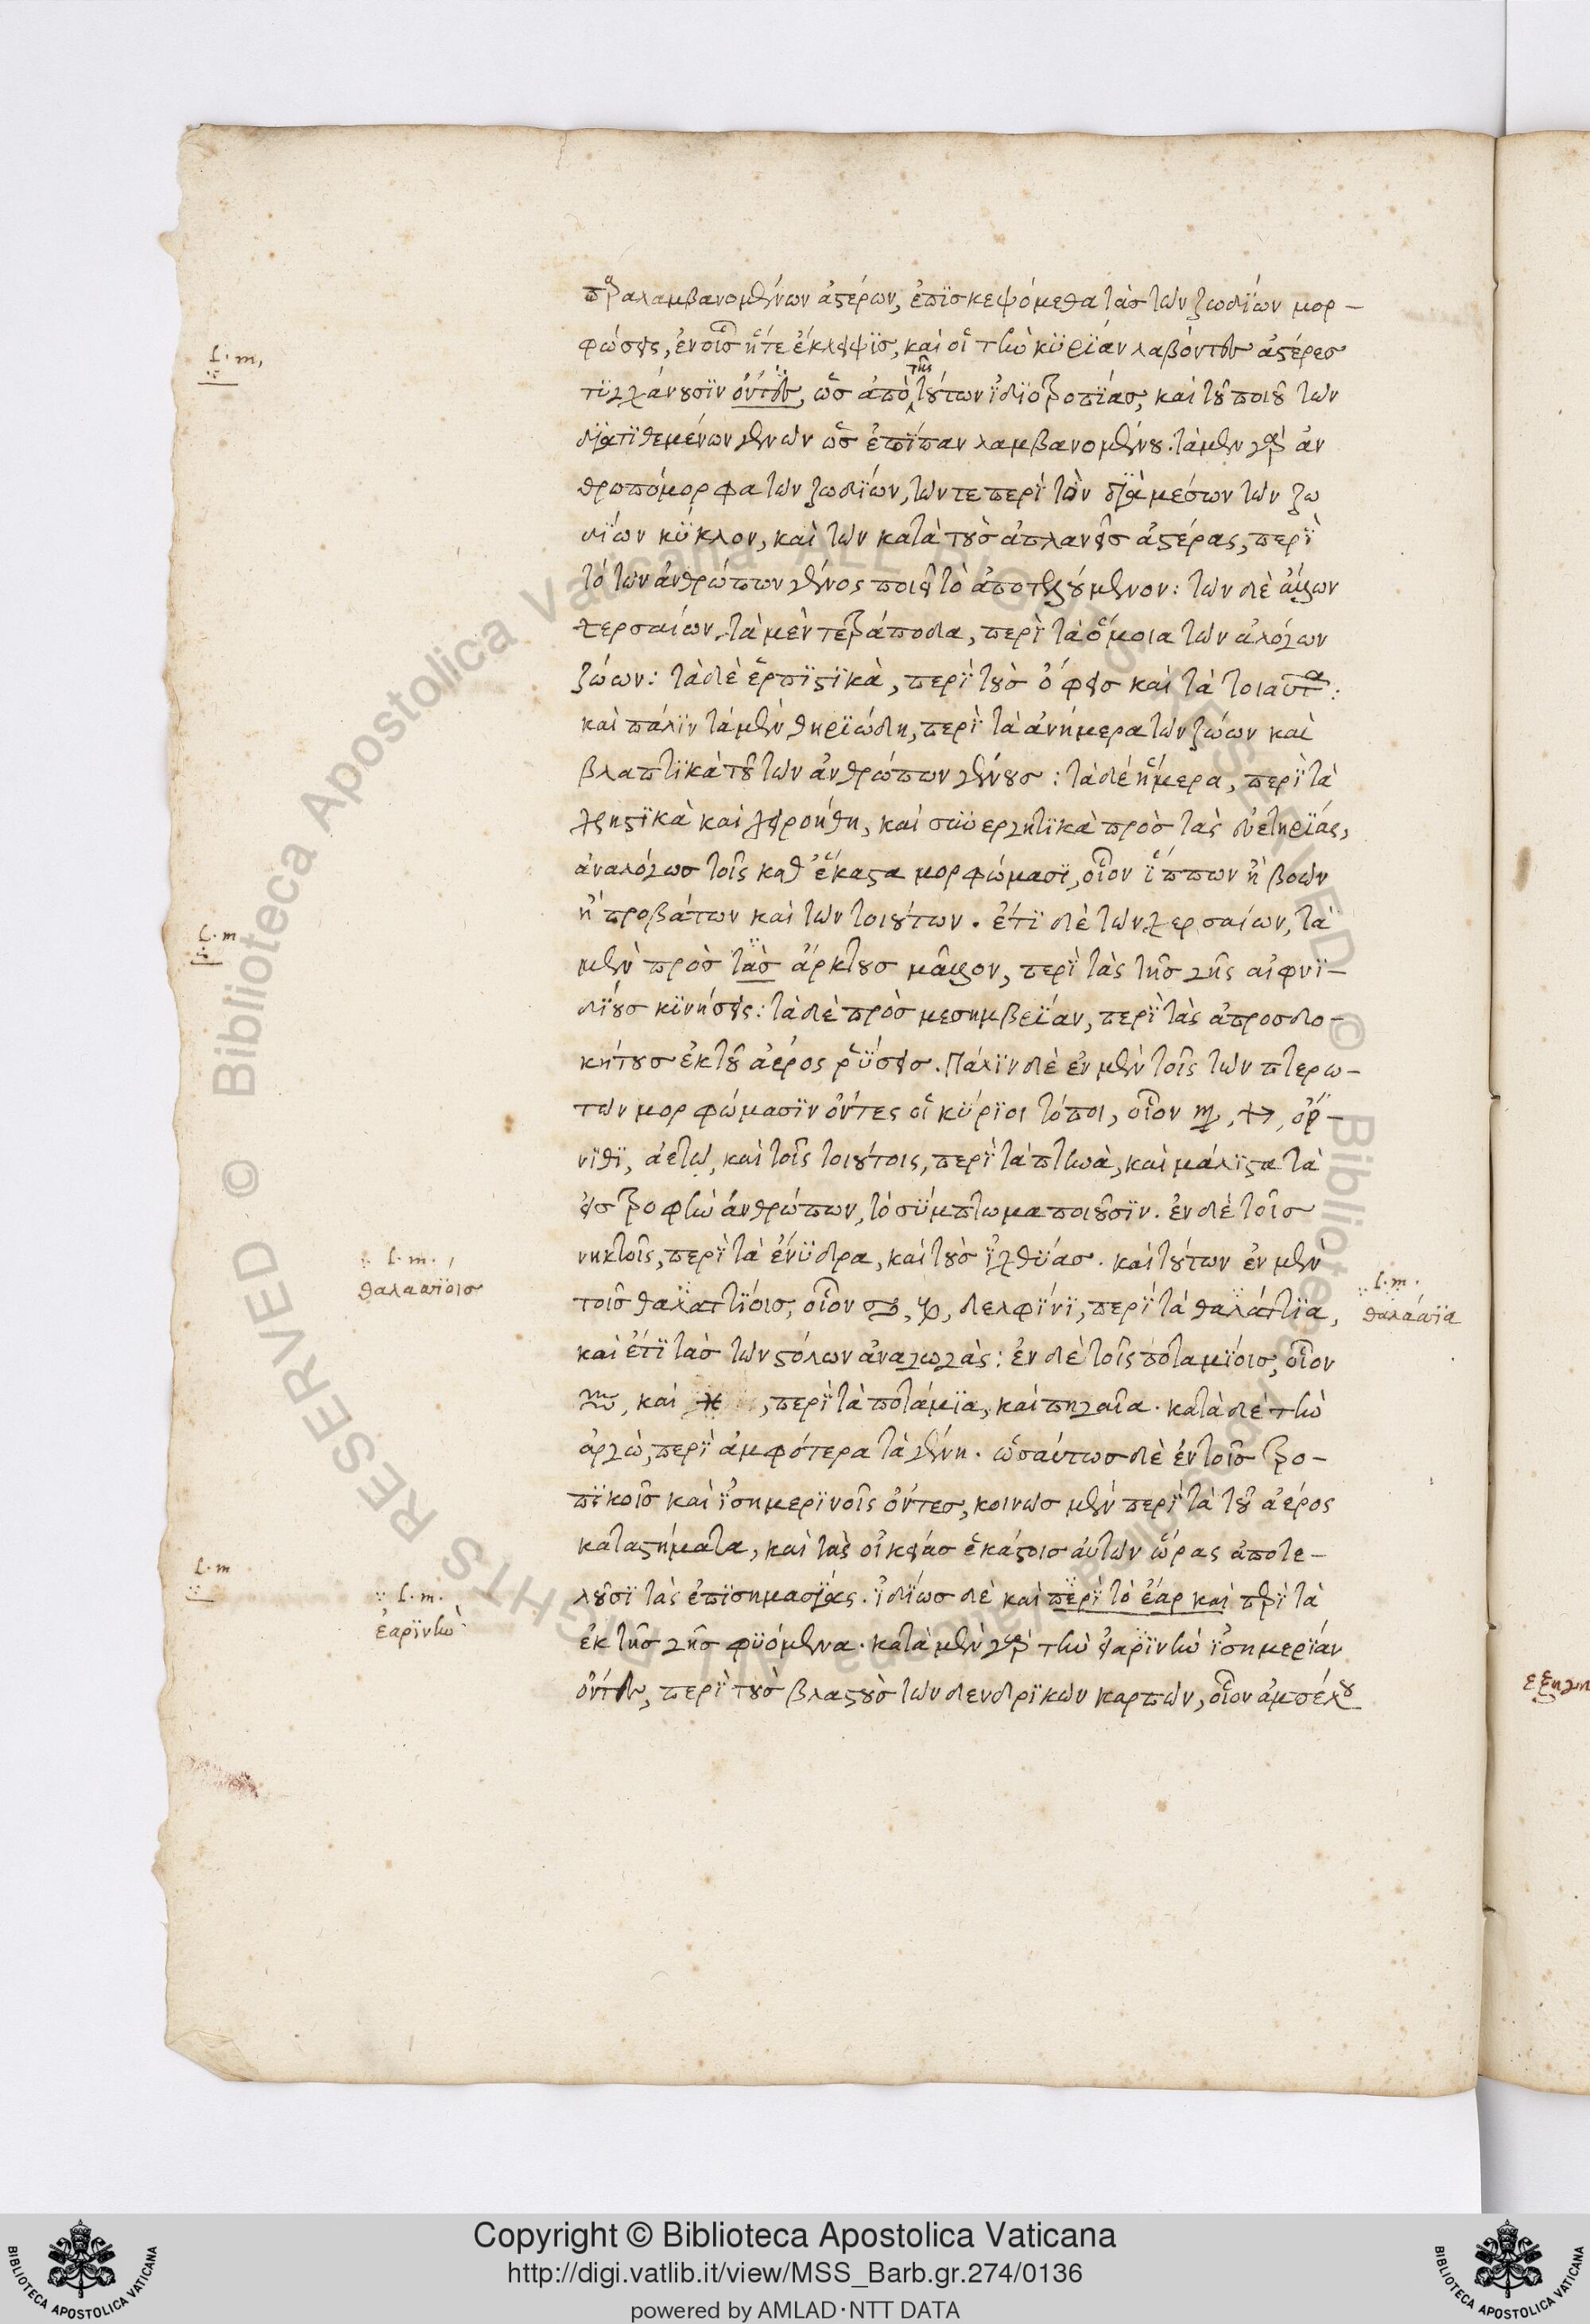 παραλαμβανομένων ἀστέρων, ἐπϊσκεψόμεθα τὰσ τῶν ζωδΐων μορ-
φώσεις, ἐν οἷσ ἥτε ἔκλειψϊσ, καὶ οἱ τὴν κϋρϊάν λαβόντες ἀστέρεσ
τϋγχάνουσϊν ὄντες, ὡσ ἀπὸ τῆς τούτων ϊδϊοτροπϊάσ, καὶ τοῦ ποιοῦ τῶν
διατϊθεμένων γενῶν ὡσ ἐπϊπαν λαμβανομένου. τὰ μὲν γὰρ ἀν
θροπόμορφα τῶν ζωδΐων, τῶν τε περὶ τὸν διὰ μέσων τῶν ζω
δΐων κϋκλον, καὶ τῶν κατὰ τοὺσ ἀπλανεῖσ ἀστέρας, περϊ
τὸ τῶν ἀνθρώπων γένος ποιεῖ τὸ ἀποτελούμενον: τῶν δὲ ἄλλων
χερσαίων, τὰ μὲν τετράποδα, περϊ τὰ ὅμοια τῶν ἀλόγων
ζώων: τὰ δὲ ἑρπϊστϊκὰ, περϊ τοὺσ ὄφεισ καὶ τὰ τοιαῦτα:
καὶ πάλϊν τὰ μὲν θηρϊώδη, περϊ τὰ ἀνήμερα τῶν ζώων καὶ
βλαπτϊκὰ τοῦ τῶν ἀνθρώπων γένουσ: τὰ δὲ ἥμερα, περϊ τὰ
χρηστϊκὰ καὶ χειροήθη, καὶ σϋνεργητϊκὰ πρὸσ τὰς εὐετηρϊάς,
ἀναλόγωσ τοῖς καθ' ἕκαστα μορφώμασϊ, οἷον ἵππων ἢ βοῶν
ἢ προβάτων καὶ τῶν τοιούτων. ἔτϊ δὲ τῶν χερσαίων, τὰ
μὲν πρὸσ τὰσ ἄρκτουσ μᾶλλον, περϊ τὰς τῆσ γῆς αἰφνϊ-
δΐουσ κϊνήσεις: τὰ δὲ πρὸσ μεσημβρϊάν, περϊ τὰς ἀπροσδο-
κήτουσ ἐκ τοῦ ἀέρος ῥϋσεισ. Πάλϊν δὲ ἐν μὲν τοῖς τῶν πτερω-
τῶν μορφώμασϊν ὄντες οἱ κϋρϊοι τόποι, οἷον ♍, ♐, ὄρ-
νϊθϊ, ἀετῷ, καὶ τοῖς τοιούτοις, περϊ τὰ πτηνὰ, καὶ μάλϊστα τὰ
εἰσ τροφὴν ἀνθρώπων, τὸ σϋμπτωμα ποιοῦσϊν. ἐν δὲ τοῖσ
νηκτοῖς, περϊ τὰ ἔνϋδρα, καὶ τοὺσ ϊχθϋάσ. καὶ τούτων ἐν μὲν
τοῖσ θαλαττϊοισ, οἷον ♋, ♑, δελφϊνϊ, περϊ τὰ θαλάττϊα,
καὶ ἔτϊ τὰσ τῶν στόλων ἀναγωγὰς: ἐν δὲ τοῖς ποταμϊοισ, οἷον
♒, καὶ ♓, περϊ τὰ ποτάμϊα, καὶ πηγαῖα. κατὰ δὲ τὴν
ἀργὼ, περϊ ἀμφότερα τὰ γένη. ὡσαύτωσ δὲ ἐν τοῖσ τρο-
πϊκοῖσ καὶ ϊσημερϊνοῖς ὄντεσ, κοινῶσ μὲν περϊ τὰ τοῦ ἀέρος
καταστήματα, καὶ τὰς οἰκείασ ἑκάστοισ αὐτῶν ὥρας ἀποτε-
λοῦσϊ τὰς ἐπϊσημασϊάς. ϊδϊωσ δὲ καὶ περϊ τὸ ἔαρ καὶ περϊ τὰ
ἐκ τῆσ γῆσ φϋόμενα. κατὰ μὲν γὰρ τὴν εἰαρϊνὴν ϊσημερϊάν
ὄντες, περϊ τοὺσ βλαστοὺσ τῶν δενδρϊκῶν καρπῶν, οἷον ἀμπέλου
l. m,
l. m
l. m.,
θαλασσϊοισ
l. m.
θαλάσσϊα
l. m
l. m.
ἐαρϊνὴν